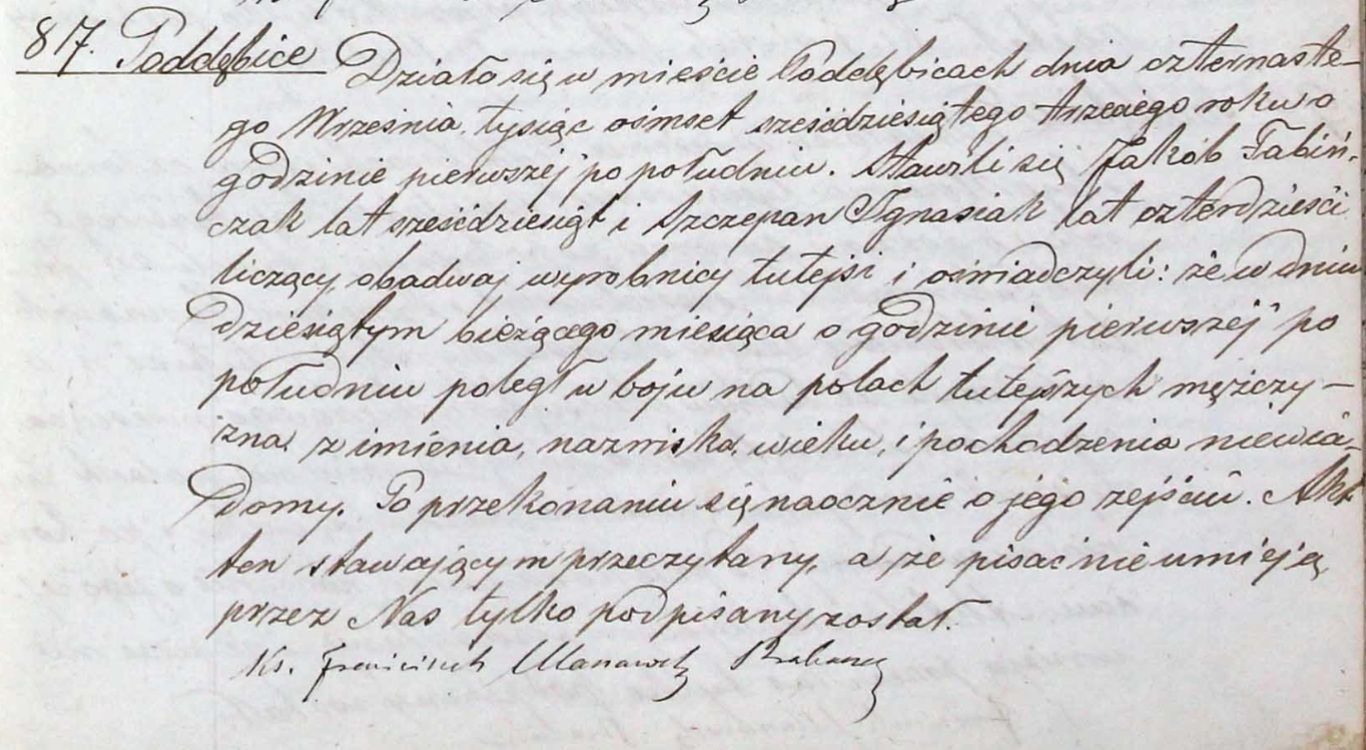 817. Poddębice Działo się w mieście Poddębicach dnia czternaste-
go Września tysiąc ośmset sześćdziesiątego trzeciego roku o
godzinie pierwszej po południu. Stawili się Jakób Fabiń-
czak lat sześćdziesiąt i Szczepan Ignasiak lat czterdzieści
liczący obadwaj wyrobnicy tutejsi i oświadczyli: że w dniu
dziesiątym bieżącego miesiąca o godzinie pierwszej po
południu poległ w boju na polach tutejszych mężczy-
zna z imienia, nazwiska, wieku, i pochodzenia niewia-
domy. Po przekonaniu się naocznie o jego zejściu. Akt
ten stawającym przeczytany, a że pisać nie umieją
przez Nas tylko podpisany został.
Ks. Franciszek